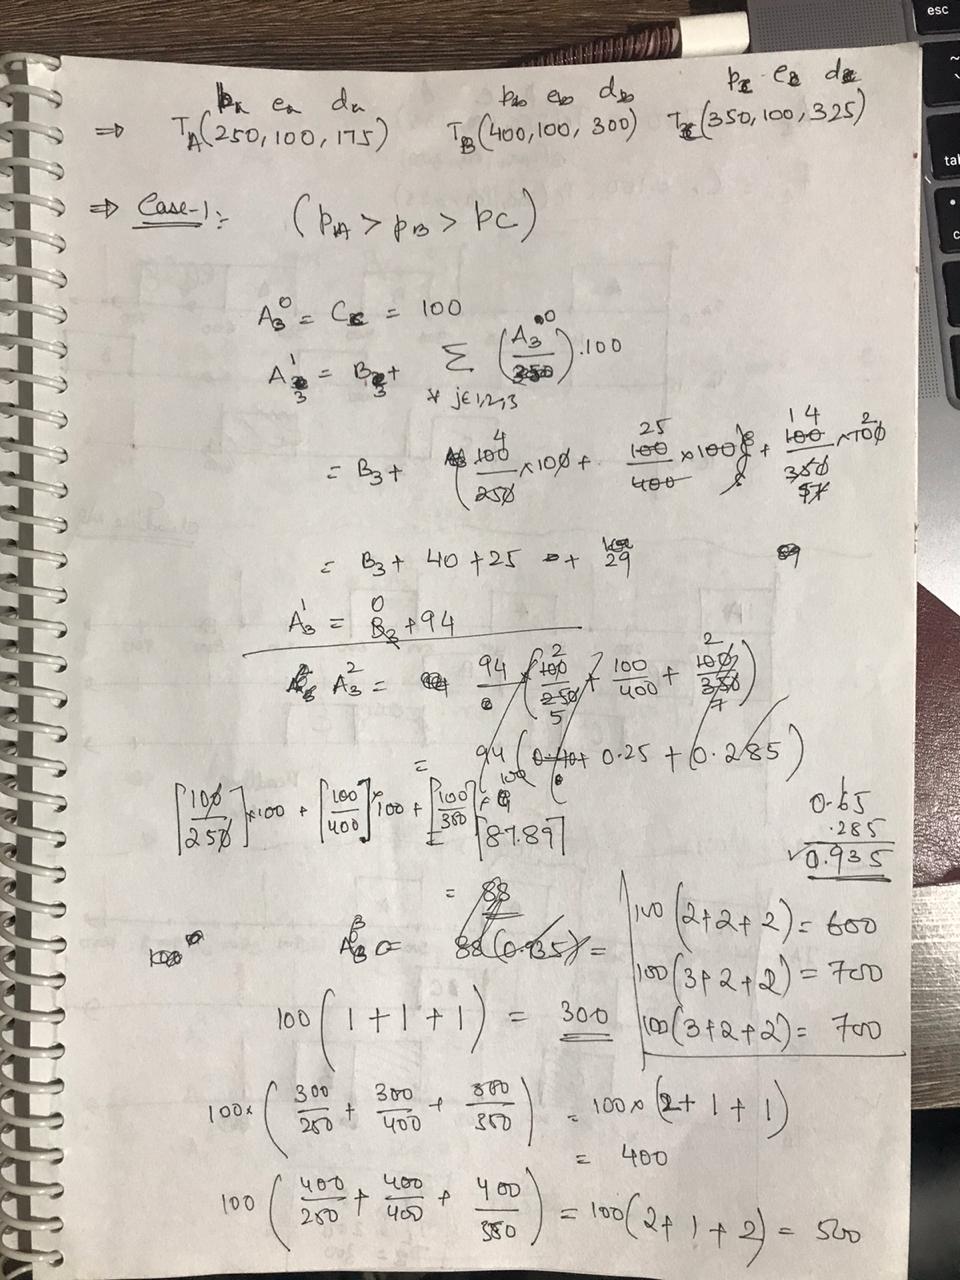 esc
tab
pA eA dA pb eb db pc ec dc
⇒ TA(250, 100, 175) TB(400, 100, 300) TC(350, 100, 325)
⇒ Case-1:- (pA > pB > pC)
A₃⁰ = C = 100
A₃¹ = B₃ + Σ (A₃⁰/350).100
* j∈1,2,3
= B₃ + (100/250 × 100 + 100/400 × 100) + 100/350 × 100
= B₃ + 40 + 25 + 29
A₃¹ = B₃ + 94
A₃² = 94 (100/250 + 100/400 + 100/350)
= 94 (0.40 + 0.25 + 0.285)
⌈100/250⌉×100 + ⌈100/400⌉×100 + ⌈100/350⌉×100
= ⌈87.89⌉
0.65
.285
0.935
= 88
A₃³ = 88(0.935) =
100 (2+2+2) = 600
100 (3+2+2) = 700
100 (3+2+2) = 700
100 (1 + 1 + 1) = 300
100× (300/250 + 300/400 + 300/350) = 100× (2+1+1)
= 400
100 (400/250 + 400/400 + 400/350) = 100(2+1+2) = 500